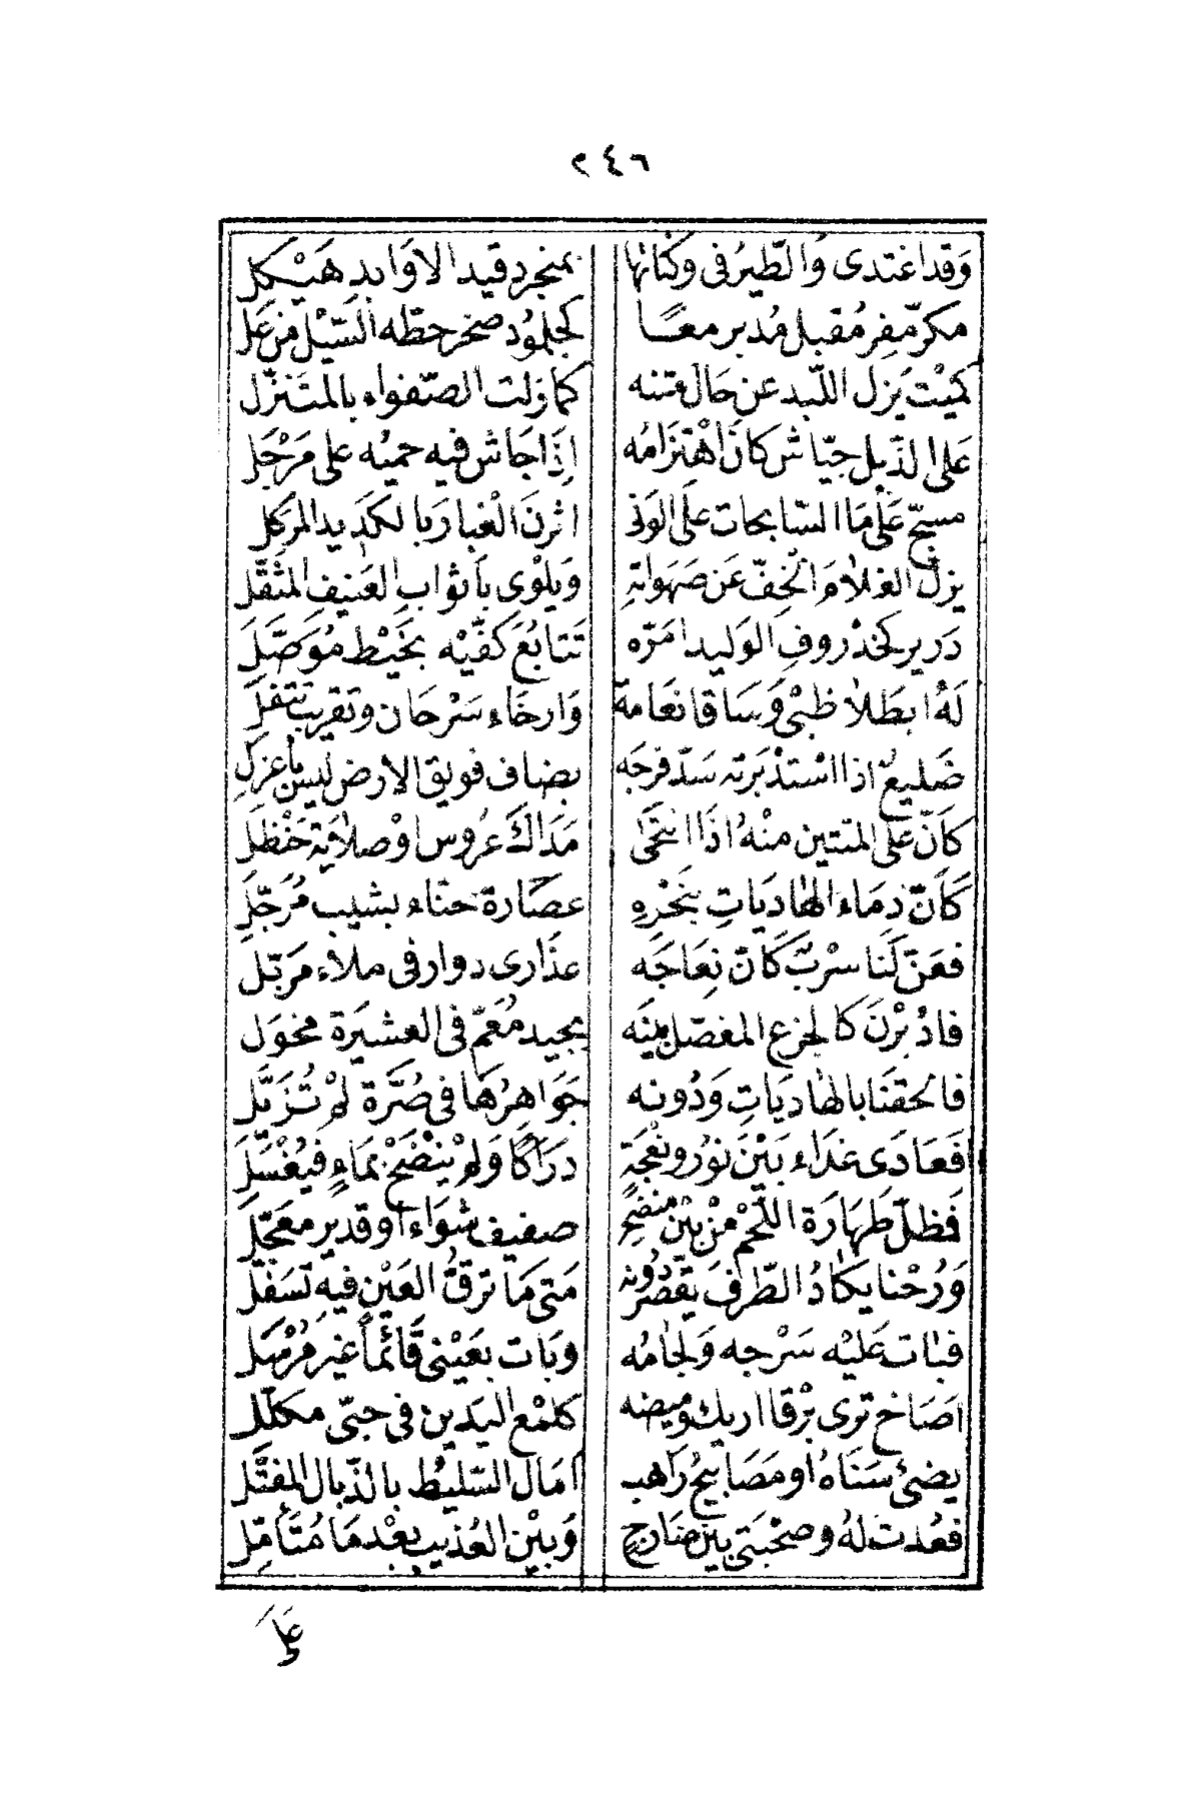 ٢٤٦
وَقد اغتدى وُالطّيرُ فى وكناتها بمنجرد قيد الاوَابد هَيْكل
مكرّ مّفِر مُقبل مُدبر معًا كجلمُود صخر حطّه السَّيْل من عَل
كميْت يَزل اللّبد عن حَال متنه كما زلت الصّفواء بالمتَنزّل
عَلى الذّبل جيّاش كانَ اهْتزَامُه اذَا جَاش فيه حميُه على مَرْجَل
مسحّ عَلْى مَا السّابحات علَى الوَنى اثرنَ الْغبارَ بالكَديد المركل
يزلّ الغلامَ الخفّ عَن صَهَواتهِ وَيلْوى بأثوابِ العَنيفِ المثَقَّل
دَرير كخذْروفِ الوَليد امَرّه تَتَابُعَ كفّيْه بخَيْط مُوَصّل
لَهُ ابطَلا ظبْى وَسَاقا نعَامة وَارخَاء سَرْحَان وتقريبُ تتفل
ضَليعٌ اذا اسْتدْبَرته سَدّ فرجَه بضاف فويق الارض ليس باعزل
كَانّ علَى المتنين منْهُ اذَا انتحَى مَدَاكَ عرُوس اوْ صلايَة حَنْظل
كَأنّ دمَاء الهَاديَاتِ بنَحْرهِ عصَارة حنّاء بشيب مُرَجّل
فعَنّ لَنا سرْبٌ كَانّ نعَاجَه عذَارى دوار فى ملاء مَرَبّل
فادْبْرْنَ كَالجزع المفصّل بينَه بجيد مُعَمّ فى العشيَرة مخوَل
فالحقنَا بالهَاديَاتِ وَدُونه جَوَاهِرُهَا فى صُرَّة لمْ تُزَيَّل
فَعَادَى عدَاء بَيْنَ ثوْر ونعْجَةٍ دَرَاكًا وَلمْ ينْضَحْ بمَاءٍ فيُغْسَل
فَظلّ طَهَارَة اللّحْم منْ بيْن منضجٍ صفيف شوَاء اوقدير معَجّل
وَرُحْنا يكَادُ الطّرفَ يقصُر دُونه مَتى مَا ترقّ العَيْن فيهِ تَسَفّل
فبات عَليْه سَرْجه وَلجامُه وبَات بعَيْنى قَائمًا غير مُرْسَل
اصَاحِ ترى برْقا اريك وميضه كلمْع اليَدين فى حبّى مكلل
يضئ سَنَاهُ او مَصَابيحُ رَاهب امَال السّليط بالذّبال المفتّل
فعُدت لهُ وصحْبتى بين ضارجٍ وَبيْن العُذيب بعْدمَا مُتَأمّل
عَلى